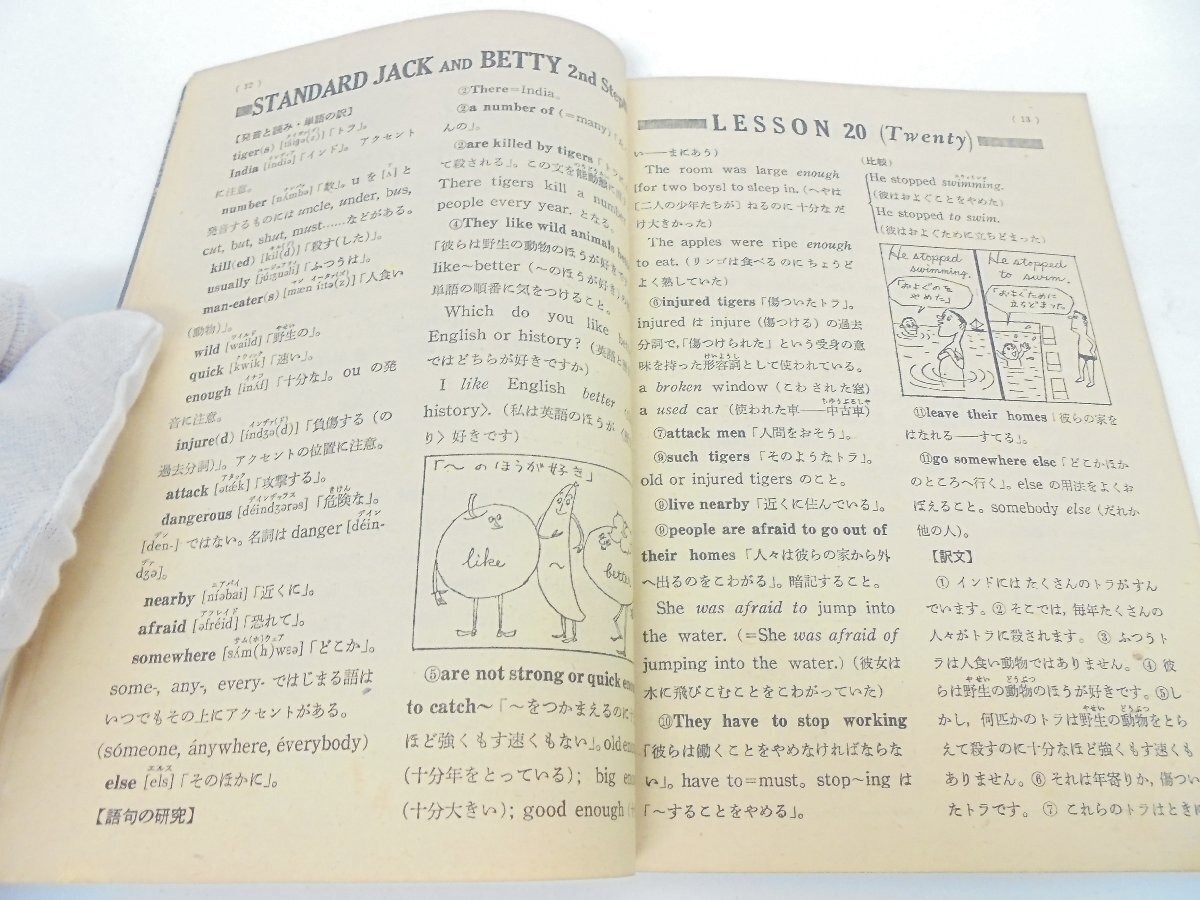 ( 12 )
STANDARD JACK AND BETTY 2nd Step
【発音と読み・単語の訳】
tiger(s) [táigə(z)]「トラ」。
India [índiə]「インド」。 アクセント
に注意。
number [nʌ́mbə]「数」。uを[ʌ]と
発音するものには uncle, under, bus,
cut, but, shut, must……などがある。
kill(ed) [kil(d)]「殺す(した)」。
usually [júːʒuəli]「ふつうは」。
man-eater(s) [mæn íːtə(z)]「人食い
(動物)」。
wild [waild]「野生の」。
quick [kwik]「速い」。
enough [inʌ́f]「十分な」。ou の発
音に注意。
injure(d) [índʒə(d)]「負傷する(の
過去分詞)」。アクセントの位置に注意。
attack [ətǽk]「攻撃する」。
dangerous [déindʒərəs]「危険な」。
[den-] ではない。名詞は danger [déin-
dʒə]。
nearby [níəbai]「近くに」。
afraid [əfréid]「恐れて」。
somewhere [sʌ́m(h)wɛə]「どこか」。
some-, any-, every- ではじまる語は
いつでもその上にアクセントがある。
(sómeone, ánywhere, éverybody)
else [els]「そのほかに」。
【語句の研究】
①There=India.
②a number of (=many)
んの」。
②are killed by tigers「トラに
て殺される」。この文を能動態に
There tigers kill a number
people every year. となる。
④They like wild animals
「彼らは野生の動物のほうが好き
like~better (~のほうが好き)の
単語の順番に気をつけること。
Which do you like
English or history? (英語と
ではどちらが好きですか)
I like English better
history〉. (私は英語のほうが
り〉好きです)
「~のほうが好き」
like
~
better
⑤are not strong or quick
to catch~「~をつかまえるのに
ほど強くもす速くもない」。old
(十分年をとっている); big
(十分大きい); good enough
LESSON 20 (Twenty)
( 13 )
い——まにあう)
The room was large enough
[for two boys] to sleep in. (へやは
[二人の少年たちが] ねるのに十分なだ
け大きかった)
The apples were ripe enough
to eat. (リンゴは食べるのにちょうど
よく熟していた)
⑥injured tigers「傷ついたトラ」。
injured は injure (傷つける) の過去
分詞で、「傷つけられた」という受身の意
味を持った形容詞として使われている。
a broken window (こわされた窓)
a used car (使われた車——中古車)
⑦attack men「人間をおそう」。
⑨such tigers「そのようなトラ」。
old or injured tigers のこと。
⑨live nearby「近くに住んでいる」。
⑨people are afraid to go out of
their homes「人々は彼らの家から外
へ出るのをこわがる」。暗記すること。
She was afraid to jump into
the water. (=She was afraid of
jumping into the water.) (彼女は
水に飛びこむことをこわがっていた)
⑩They have to stop working
「彼らは働くことをやめなければならな
い」。have to=must。stop~ing は
「~することをやめる」。
(比較)
He stopped swimming.
(彼はおよぐことをやめた)
He stopped to swim.
(彼はおよぐために立ちどまった)
He stopped
swimming.
「およぐのを
やめた」
He stopped
to swim.
「およぐために
立ちどまった。
⑪leave their homes「彼らの家を
はなれる——すてる」。
⑪go somewhere else「どこかほか
のところへ行く」。else の用法をよくお
ぼえること。somebody else (だれか
他の人)。
【訳文】
① インドにはたくさんのトラがすん
でいます。② そこでは,毎年たくさんの
人々がトラに殺されます。 ③ ふつうト
ラは人食い動物ではありません。④ 彼
らは野生の動物のほうが好きです。⑤し
かし,何匹かのトラは野生の動物をとら
えて殺すのに十分なほど強くもす速くも
ありません。⑥ それは年寄りか,傷つい
たトラです。⑦ これらのトラはときに